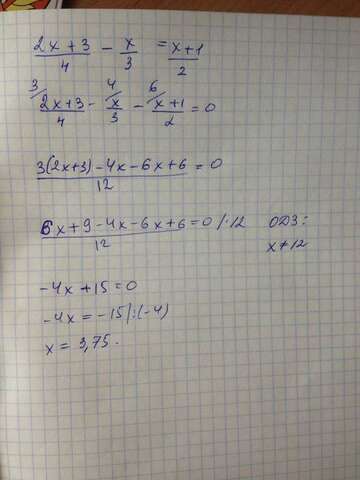 (2x+3)/4 - x/3 = (x+1)/2
3/ (2x+3)/4 - 4/ x/3 - 6/ (x+1)/2 = 0
(3(2x+3)-4x-6x+6)/12 = 0
(6x+9-4x-6x+6)/12 = 0 /·12 ОДЗ:
x≠12
-4x+15=0
-4x=-15/:(-4)
x=3,75.